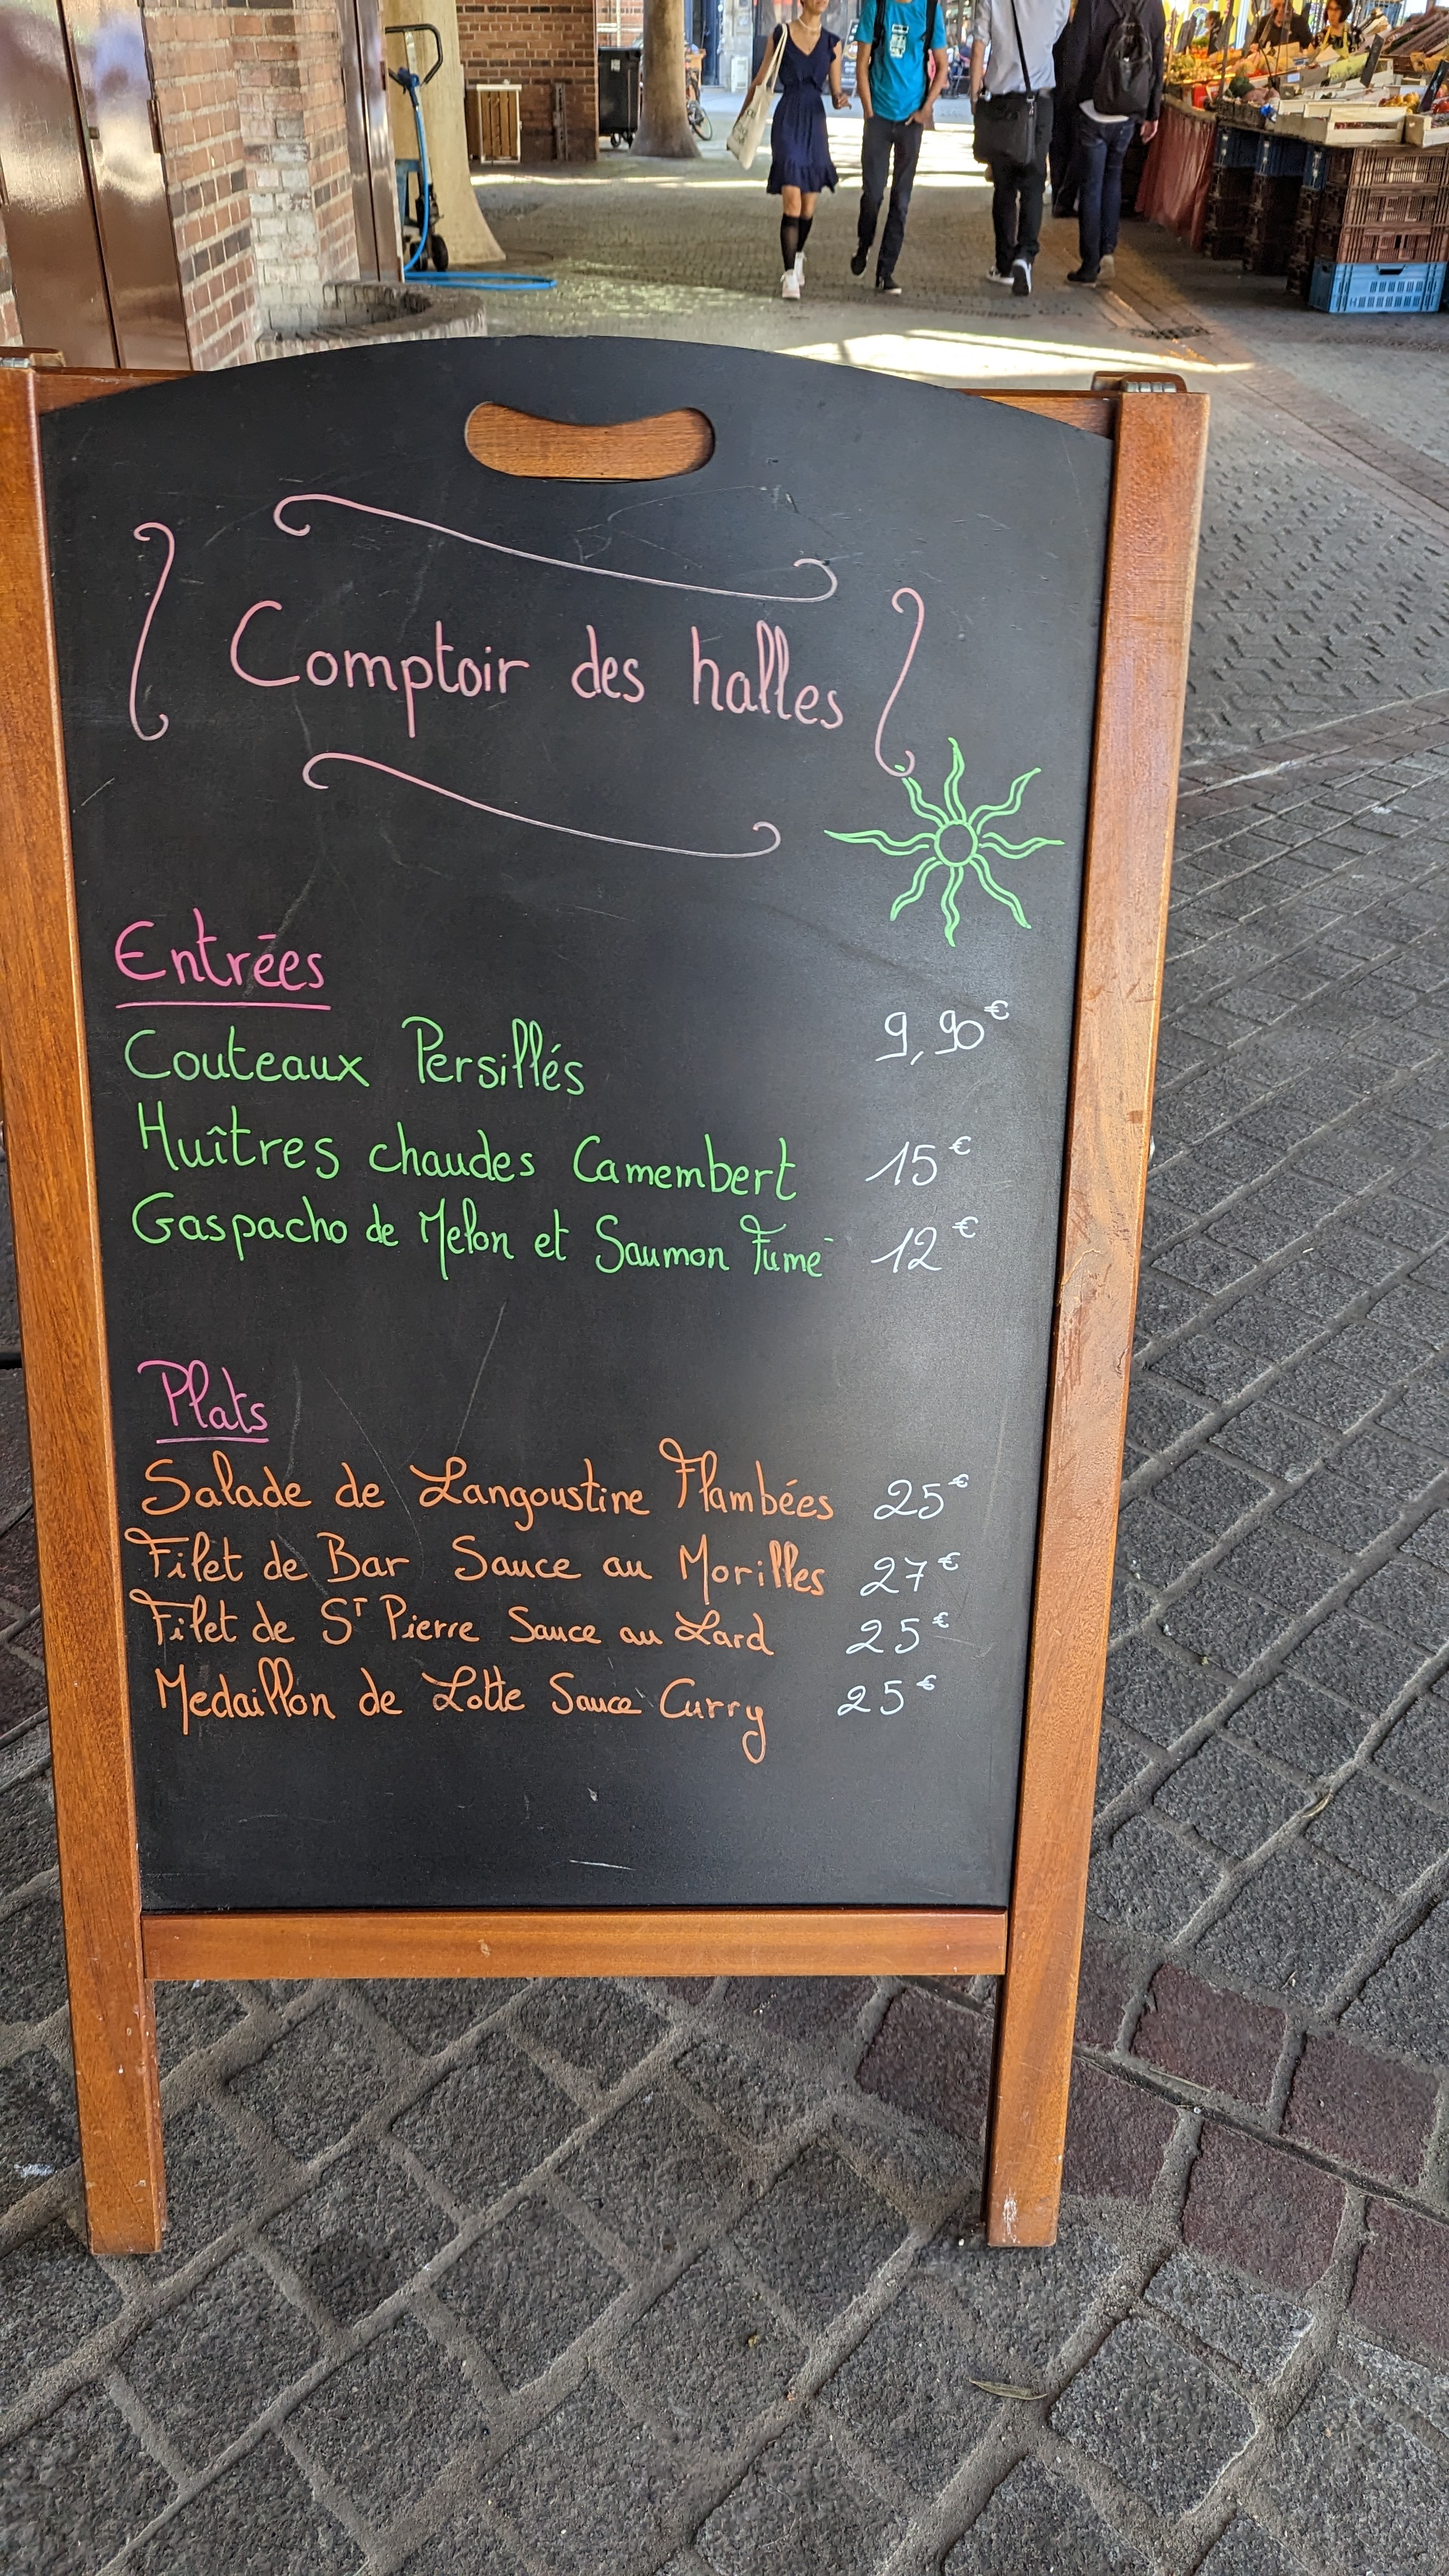 Comptoir des halles
Entrées
Couteaux Persillés 9,90€
Huîtres chaudes Camembert 15€
Gaspacho de Melon et Saumon Fumé 12€
Plats
Salade de Langoustine Flambées 25€
Filet de Bar Sauce au Morilles 27€
Filet de ST Pierre Sauce au Lard 25€
Medaillon de Lotte Sauce Curry 25€